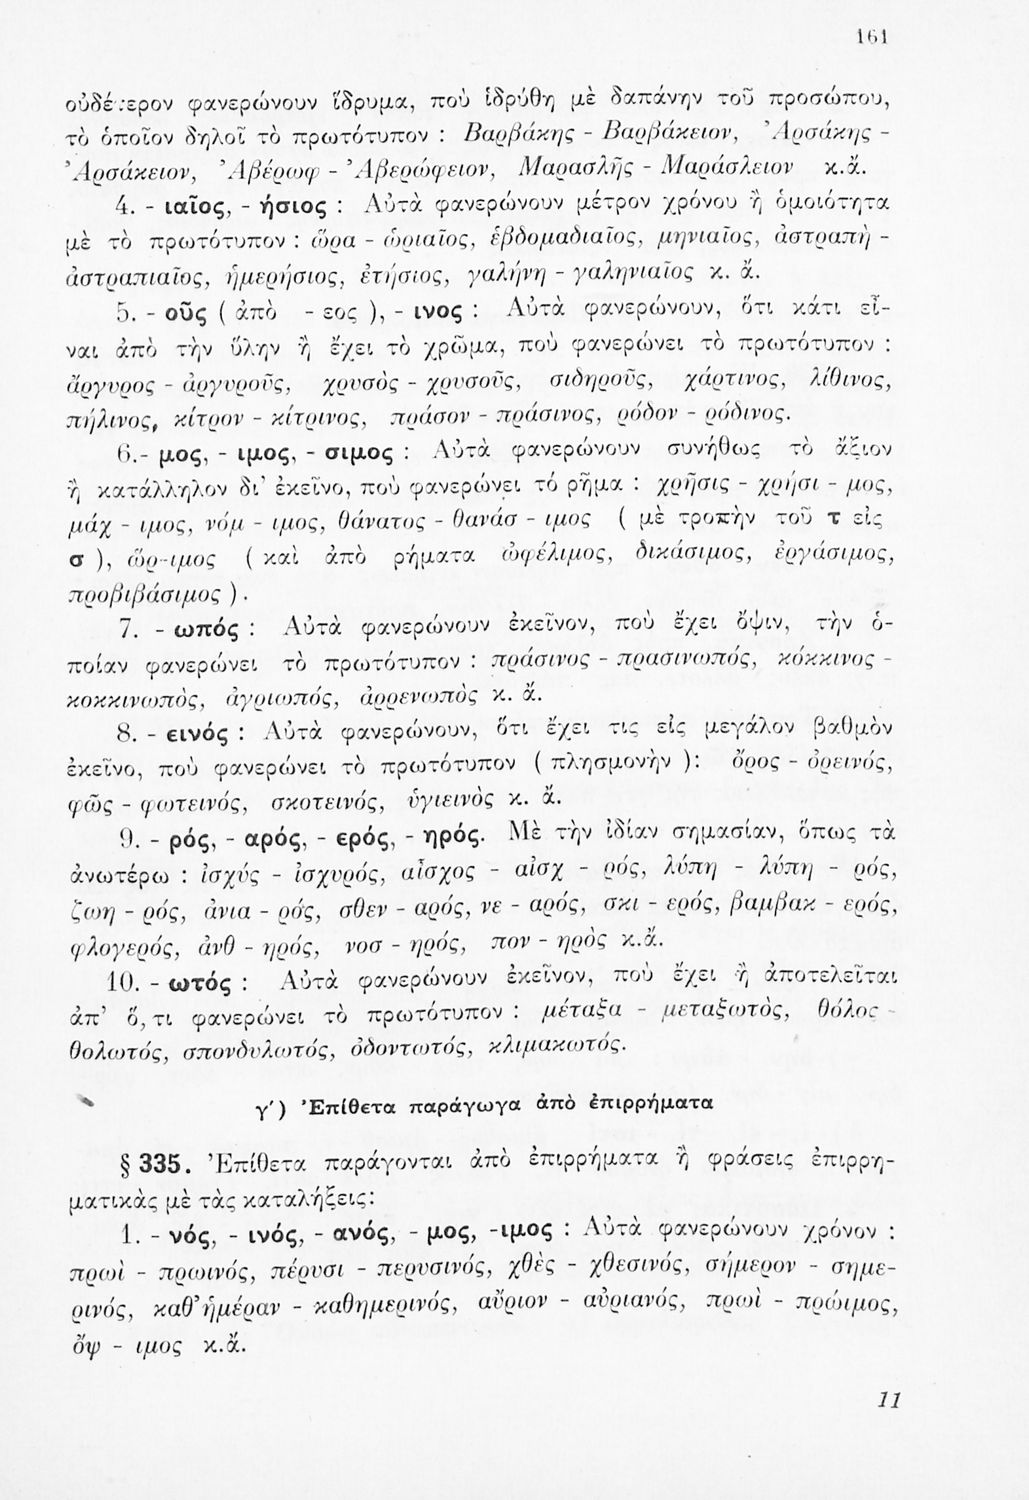 161
οὐδέτερον φανερώνουν ἵδρυμα, ποὺ ἱδρύθη μὲ δαπάνην τοῦ προσώπου,
τὸ ὁποῖον δηλοῖ τὸ πρωτότυπον : Βαρβάκης - Βαρβάκειον, Ἀρσάκης -
Ἀρσάκειον, Ἀβέρωφ - Ἀβερώφειον, Μαρασλῆς - Μαράσλειον κ.ἄ.
4. - ιαῖος, - ήσιος : Αὐτὰ φανερώνουν μέτρον χρόνου ἢ ὁμοιότητα
μὲ τὸ πρωτότυπον : ὥρα - ὡριαῖος, ἑβδομαδιαῖος, μηνιαῖος, ἀστραπὴ -
ἀστραπιαῖος, ἡμερήσιος, ἐτήσιος, γαλήνη - γαληνιαῖος κ. ἄ.
5. - οῦς ( ἀπὸ - εος ), - ινος : Αὐτὰ φανερώνουν, ὅτι κάτι εἶ-
ναι ἀπὸ τὴν ὕλην ἢ ἔχει τὸ χρῶμα, ποὺ φανερώνει τὸ πρωτότυπον :
ἄργυρος - ἀργυροῦς, χρυσὸς - χρυσοῦς, σιδηροῦς, χάρτινος, λίθινος,
πήλινος, κίτρον - κίτρινος, πράσον - πράσινος, ρόδον - ρόδινος.
6.- μος, - ιμος, - σιμος : Αὐτὰ φανερώνουν συνήθως τὸ ἄξιον
ἢ κατάλληλον δι' ἐκεῖνο, ποὺ φανερώνει τό ρῆμα : χρῆσις - χρήσι - μος,
μάχ - ιμος, νόμ - ιμος, θάνατος - θανάσ - ιμος ( μὲ τροπὴν τοῦ τ εἰς
σ ), ὥρ-ιμος ( καὶ ἀπὸ ρήματα ὠφέλιμος, δικάσιμος, ἐργάσιμος,
προβιβάσιμος ).
7. - ωπός : Αὐτὰ φανερώνουν ἐκεῖνον, ποὺ ἔχει ὄψιν, τὴν ὁ-
ποίαν φανερώνει τὸ πρωτότυπον : πράσινος - πρασινωπός, κόκκινος -
κοκκινωπὸς, ἀγριωπός, ἀρρενωπὸς κ. ἄ.
8. - εινός : Αὐτὰ φανερώνουν, ὅτι ἔχει τις εἰς μεγάλον βαθμὸν
ἐκεῖνο, ποὺ φανερώνει τὸ πρωτότυπον ( πλησμονὴν ): ὄρος - ὀρεινός,
φῶς - φωτεινός, σκοτεινός, ὑγιεινὸς κ. ἄ.
9. - ρός, - αρός, - ερός, - ηρός. Μὲ τὴν ἰδίαν σημασίαν, ὅπως τὰ
ἀνωτέρω : ἰσχύς - ἰσχυρός, αἶσχος - αἰσχ - ρός, λύπη - λύπη - ρός,
ζωη - ρός, ἀνια - ρός, σθεν - αρός, νε - αρός, σκι - ερός, βαμβακ - ερός,
φλογερός, ἀνθ - ηρός, νοσ - ηρός, πον - ηρὸς κ.ἄ.
10. - ωτός : Αὐτὰ φανερώνουν ἐκεῖνον, ποὺ ἔχει ἢ ἀποτελεῖται
ἀπ' ὅ,τι φανερώνει τὸ πρωτότυπον : μέταξα - μεταξωτὸς, θόλος -
θολωτός, σπονδυλωτός, ὀδοντωτός, κλιμακωτός.
γ') Ἐπίθετα παράγωγα ἀπὸ ἐπιρρήματα
§ 335. Ἐπίθετα παράγονται ἀπὸ ἐπιρρήματα ἢ φράσεις ἐπιρρη-
ματικὰς μὲ τὰς καταλήξεις:
1. - νός, - ινός, - ανός, - μος, -ιμος : Αὐτὰ φανερώνουν χρόνον :
πρωὶ - πρωινός, πέρυσι - περυσινός, χθὲς - χθεσινός, σήμερον - σημε-
ρινός, καθ' ἡμέραν - καθημερινός, αὔριον - αὐριανός, πρωὶ - πρώιμος,
ὄψ - ιμος κ.ἄ.
11